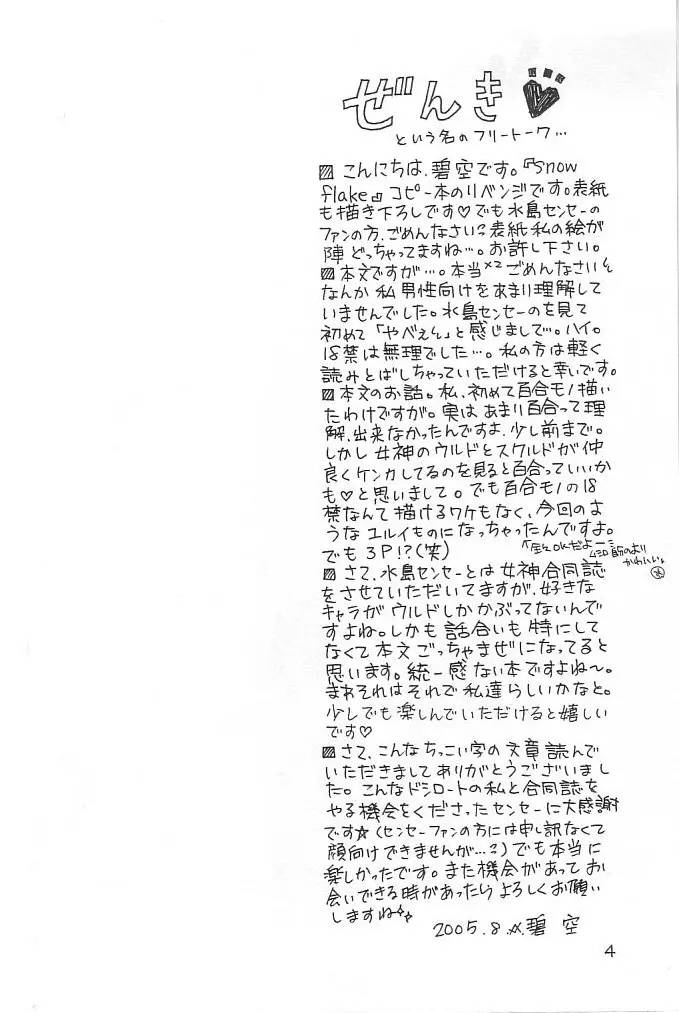 ぜんき♥
という名のフリートーク…
▨こんにちは、碧空です。『snow
flake』コピー本のリベンジです。表紙
も描き下ろしです♡でも水島センセーの
ファンの方、ごめんなさい 表紙私の絵が
陣どっちゃってますね…。お許し下さい。
▨本文ですが…。本当×2ごめんなさい
なんか私男性向けをあまり理解して
いませんでした。水島センセーのを見て
初めて「やべぇぞ」と感じまして…。ハイ。
18禁は無理でした…。私の方は軽く
読みとばしちゃっていただけると幸いです。
▨本文のお話。私、初めて百合モノ描い
たわけですが。実はあまり百合って理
解出来なかったんですよ、少し前まで。
しかし女神のウルドとスクルドが仲
良くケンカしてるのを見ると百合っていいか
も♡と思いまして。でも百合モノの18
禁なんて描けるワケもなく、今回のよ
うなユルイものになっちゃったんですよ。
でも3P!?(笑)
OKだよー
のより
かわいい。
▨さて、水島センセーとは女神合同誌
をさせていただいてますが、好きな
キャラがウルドしかかぶってないんで
すよね。しかも話合いも特にして
なくて本文ごっちゃまぜになってると
思います。統一感ない本ですよね〜。
まぁそれはそれで私達らしいかなと。
少しでも楽しんでいただけると嬉しい
です♡
▨さて、こんなちっこい字の文章読んで
いただきましてありがとうございまし
た。こんなドシロートの私と合同誌を
やる機会をくださったセンセーに大感謝
です☆(センセーファンの方には申し訳なくて
顔向けできませんが…)でも本当に
楽しかったです。また機会があってお
会いできる時があったらよろしくお願い
しますね
2005.8.☆碧 空
4